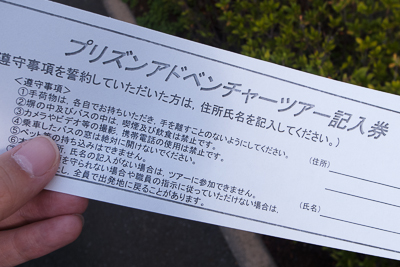 プリズンアドベンチャーツアー記入券
遵守事項を誓約していただいた方は、住所氏名を記入してください。）
＜遵守事項＞
①手荷物は、各自でお持ちいただき、手を離すことのないようにしてください。
②塀の中及びバスの中は、喫煙及び飲食は禁止です。
③カメラやビデオ等の撮影、携帯電話の使用は禁止です。
④乗車したバスの窓は絶対に開けないでください。
⑤ペット等の持ち込みはできません。
氏名の記入がない場合は、ツアーに参加できません。
を守られない場合や職員の指示に従っていただけない場合は、
し、全員で出発地に戻ることがあります。
（住所）
（氏名）